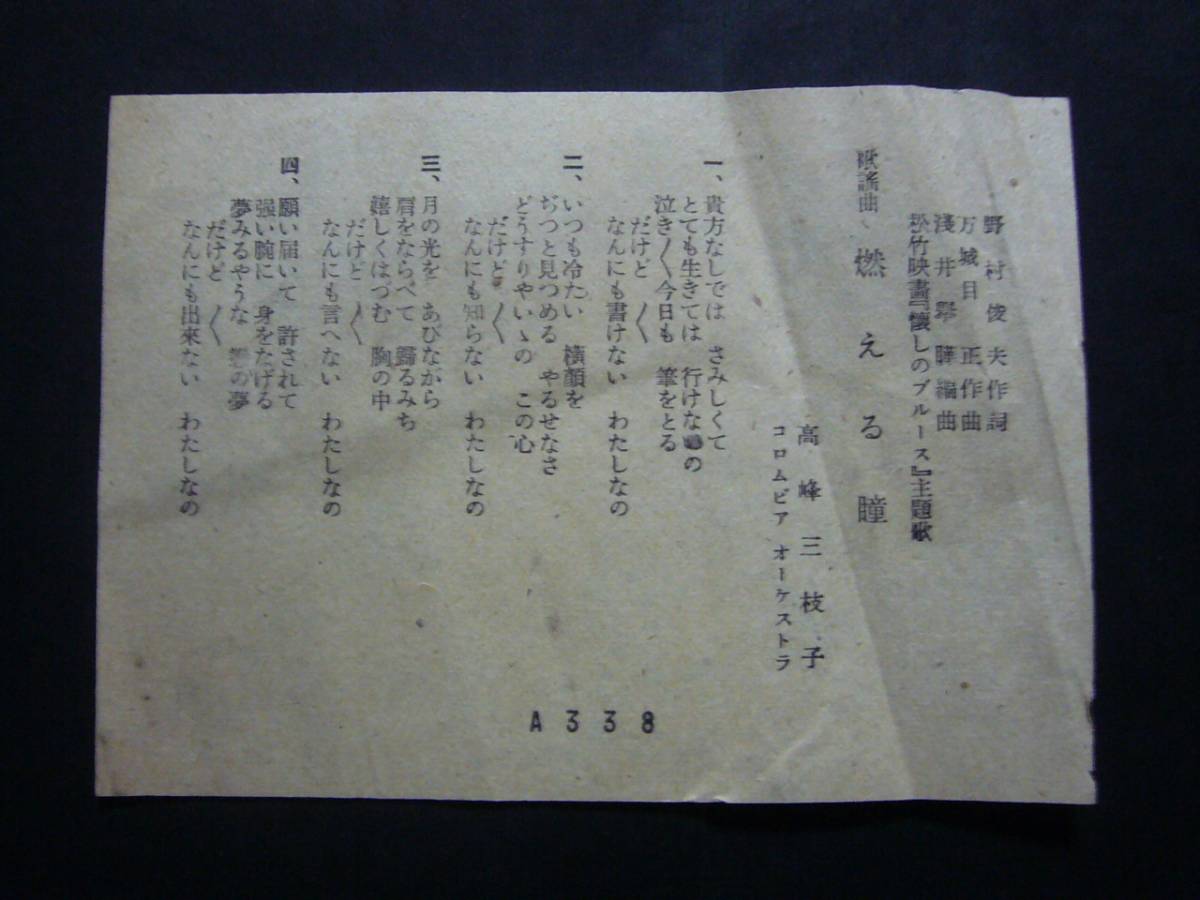 野村俊夫作詞
万城目正作曲
淺井擧曄編曲
松竹映畫『懐しのブルース』主題歌
歌謡曲、燃える瞳
高峰三枝子
コロムビア オーケストラ
一、貴方なしでは さみしくて
とても生きては 行けな の
泣き〱今日も 筆をとる
だけど 〱
なんにも書けない わたしなの
二、いつも冷たい 横顔を
ぢつと見つめる やるせなさ
どうすりやいゝの この心
だけど 〱
なんにも知らない わたしなの
三、月の光を あびながら
肩をならべて 歸るみち
嬉しくはづむ 胸の中
だけど 〱
なんにも言へない わたしなの
四、願い届いて 許されて
强い腕に 身をたげる
夢みるやうな の夢
だけど 〱
なんにも出来ない わたしなの
A338